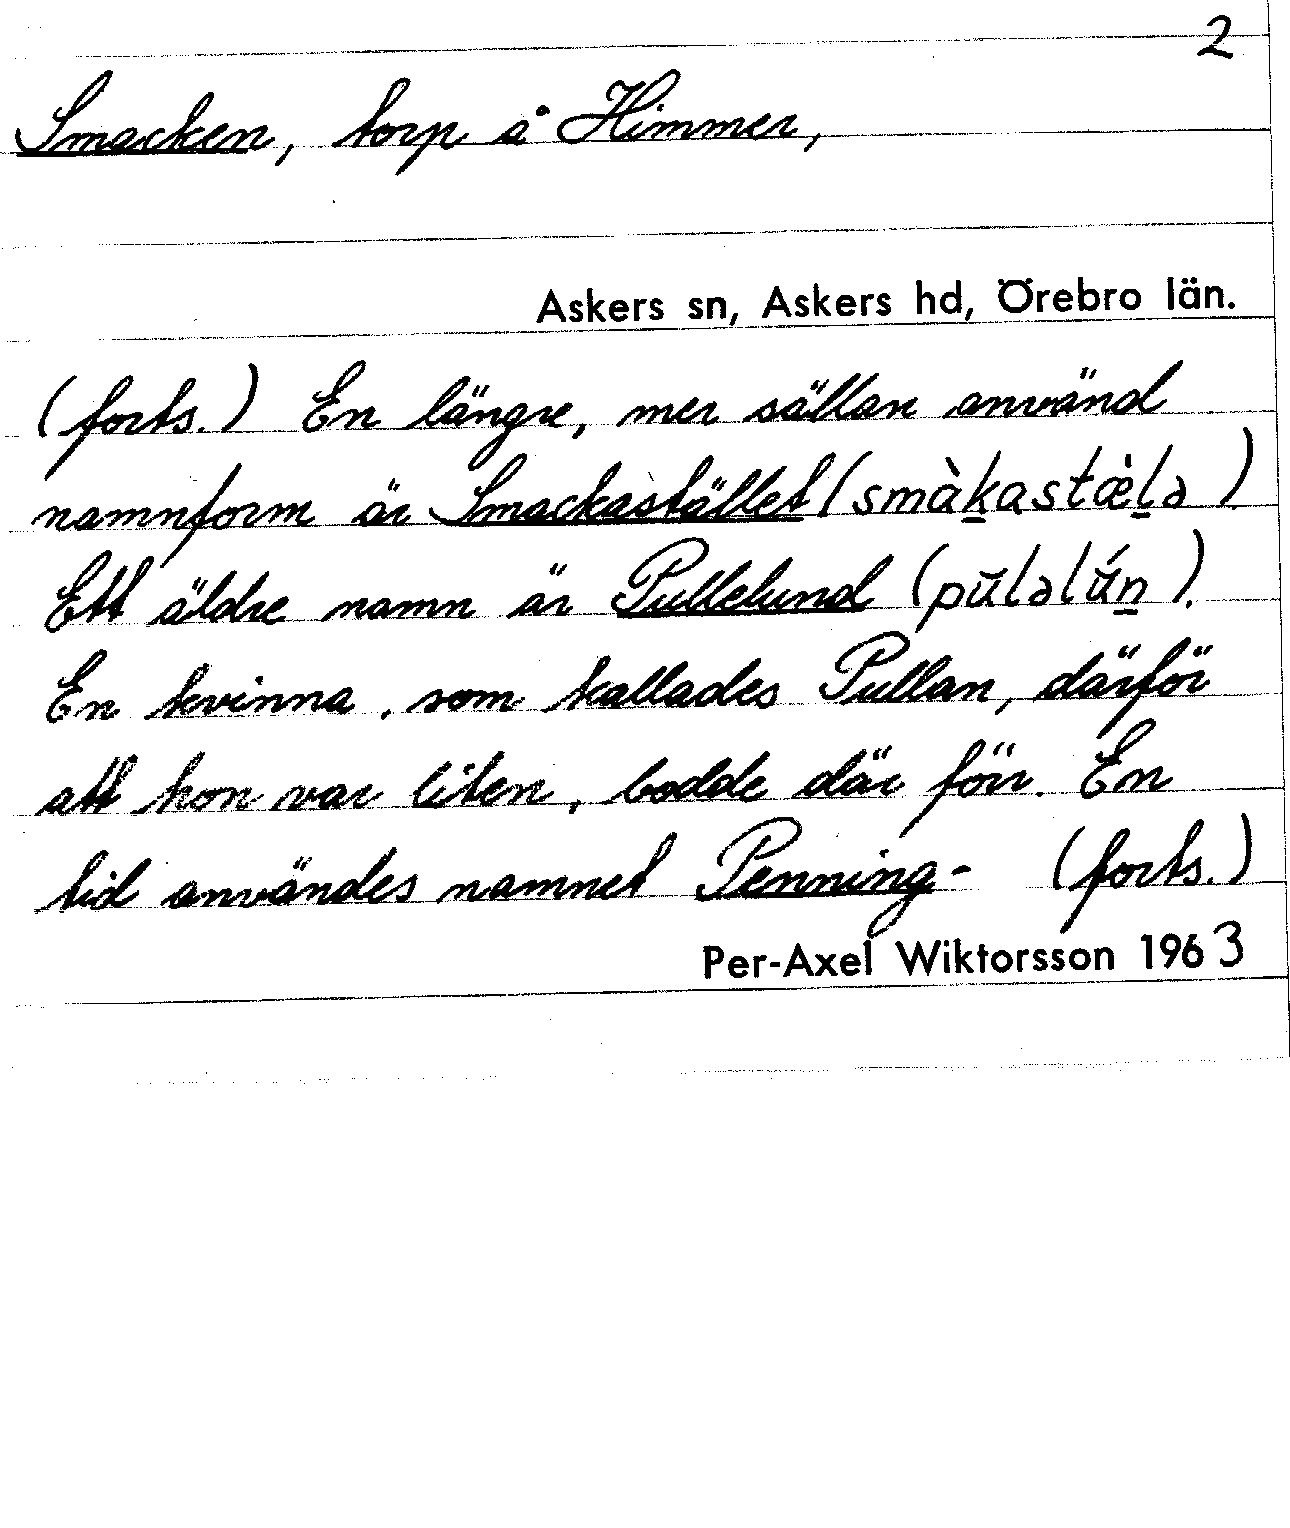 2
Smacken, torp å Himmer,
Askers sn, Askers hd, Örebro län.
(forts.) En längre, mer sällan använd
namnform är Smackastället (smàk̲astæ̀l̲ə).
Ett äldre namn är Pullelund (pŭləlú̆n̲).
En kvinna, som kallades Pullan, därför
att hon var liten, bodde där förr. En
tid användes namnet Penning- (forts.)
Per-Axel Wiktorsson 1963